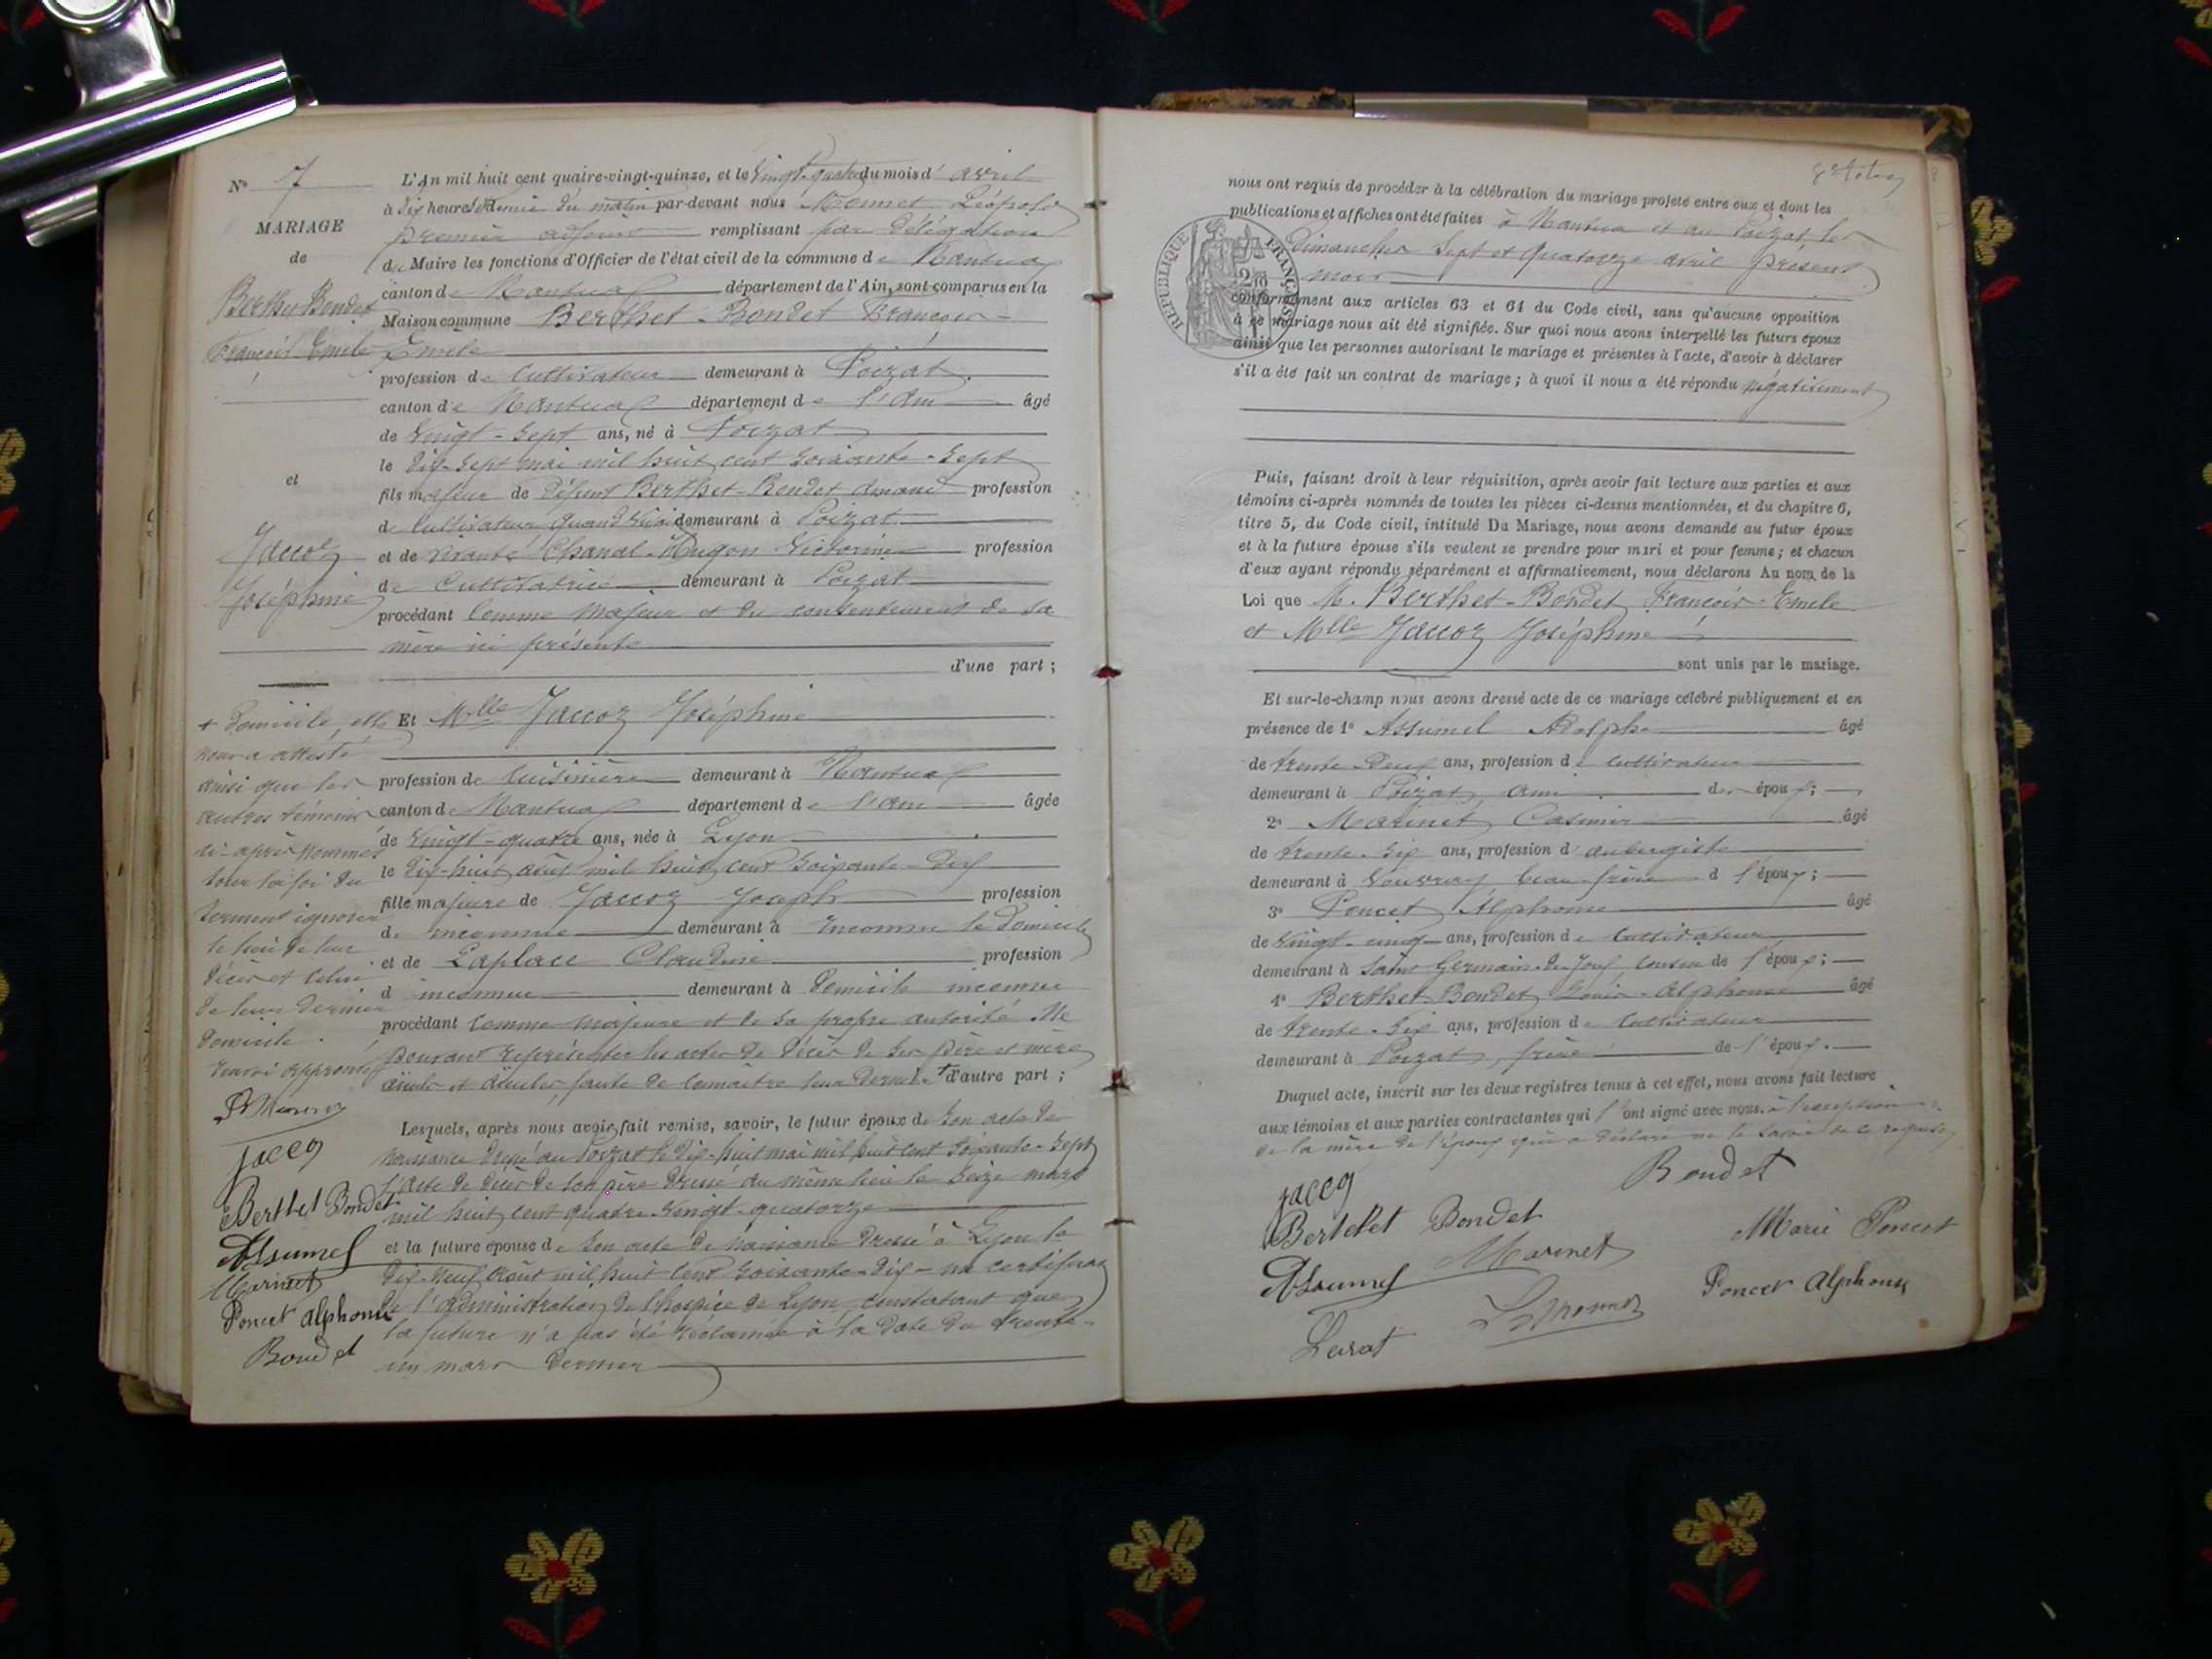 N° 7
MARIAGE
de
Berthet-Bondet
François-Emile
et
Jaccoz
Joséphine
L'An mil huit cent quatre-vingt-quinze, et le vingt-quatre du mois d'avril
à dix heures et demie du matin par-devant nous Monnet Léopold
premier adjoint remplissant par délégation
du Maire les fonctions d'Officier de l'état civil de la commune de Nantua
canton de Nantua département de l'Ain, sont comparus en la
Maison commune Berthet-Bondet François-
Emile
profession de cultivateur demeurant à Poizat
canton de Nantua département de l'Ain âgé
de vingt-sept ans, né à Poizat
le dix-sept mai mil huit cent soixante-sept
fils majeur de défunt Berthet-Bondet Amand profession
de cultivateur quand vivait demeurant à Poizat
et de vivante Chanal-Hugon Victorine profession
de cultivatrice demeurant à Poizat
procédant comme majeur et du consentement de sa
mère ici présente
d'une part ;
Et Mlle Jaccoz Joséphine
profession de cuisinière demeurant à Nantua
canton de Nantua département de l'Ain âgée
de vingt-quatre ans, née à Lyon
le dix-huit août mil huit cent soixante-dix
fille majeure de Jaccoz Joseph profession
d. inconnue demeurant à inconnu le domicile
et de Laplace Claudine profession
d inconnue demeurant à domicile inconnu
procédant comme majeure et de sa propre autorité. Ne
pouvant représenter les actes de décès de ses père et mère
aïeuls et aïeules, faute de connaître leur dernier + d'autre part ;
+ domicile, elle
nous a attesté
ainsi que les
autres témoins
ci-après nommés
sous la foi du
serment ignorer
le lieu de leur
décès et celui
de leur dernier
domicile.
renvoi approuvé
Jaccoz
Berthet Bondet
Assumel
Marinet
Poncet Alphonse
Bondet
Lesquels, après nous avoir fait remise, savoir, le futur époux de son acte de
naissance dressé au Poizat le dix-huit mai mil huit cent soixante-sept
l'acte de décès de son père dressé au même lieu le seize mars
mil huit cent quatre-vingt-quatorze
et la future épouse de son acte de naissance dressé à Lyon le
dix-neuf août mil huit cent soixante-dix - un certificat
de l'administration de l'hospice de Lyon constatant que
la future n'a pas été réclamée à la date du trente-
un mars dernier
nous ont requis de procéder à la célébration du mariage projeté entre eux et dont les
publications et affiches ont été faites à Nantua et au Poizat, les
dimanches sept et quatorze avril présent
mois
RÉPUBLIQUE FRANÇAISE
conformément aux articles 63 et 64 du Code civil, sans qu'aucune opposition
à ce mariage nous ait été signifiée. Sur quoi nous avons interpellé les futurs époux
ainsi que les personnes autorisant le mariage et présentes à l'acte, d'avoir à déclarer
s'il a été fait un contrat de mariage ; à quoi il nous a été répondu négativement
Puis, faisant droit à leur réquisition, après avoir fait lecture aux parties et aux
témoins ci-après nommés de toutes les pièces ci-dessus mentionnées, et du chapitre 6,
titre 5, du Code civil, intitulé Du Mariage, nous avons demandé au futur époux
et à la future épouse s'ils veulent se prendre pour mari et pour femme ; et chacun
d'eux ayant répondu séparément et affirmativement, nous déclarons Au nom de la
Loi que M. Berthet-Bondet François-Emile
et Mlle Jaccoz Joséphine
sont unis par le mariage.
Et sur-le-champ nous avons dressé acte de ce mariage célébré publiquement et en
présence de 1° Assumel Adolphe âgé
de trente-deux ans, profession de cultivateur
demeurant à Poizat, Ain des époux ;
2° Marinet Casimir âgé
de trente-six ans, profession d'aubergiste
demeurant à Vouvray beau-frère d l'époux ;
3° Poncet Alphonse âgé
de vingt-cinq ans, profession de cultivateur
demeurant à Saint Germain-de-Joux, cousin de l'époux ;
4° Berthet-Bondet Louis-Alphonse âgé
de trente-six ans, profession de cultivateur
demeurant à Poizat, frère de l'époux.
Duquel acte, inscrit sur les deux registres tenus à cet effet, nous avons fait lecture
aux témoins et aux parties contractantes qui l'ont signé avec nous. à l'exception
de la mère de l'époux qui a déclaré ne le savoir de ce requise
Jaccoz
Bondet
Berthet Bondet
Marie Poncet
Marinet
Assumel
Poncet Alphonse
L Monnet